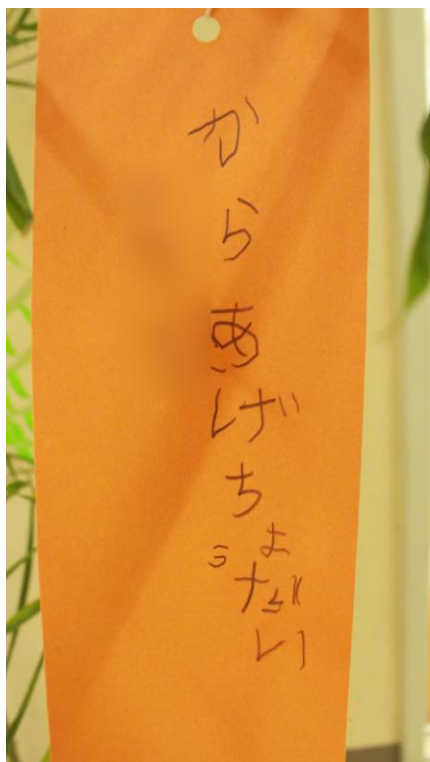 からあげちょうだい